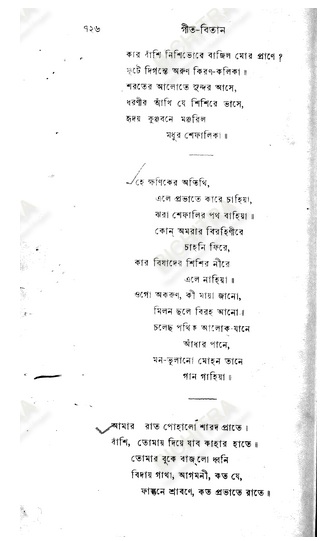 ৭২৬ গীত-বিতান
কার বাঁশি নিশিভোরে বাজিল মোর প্রাণে ?
ফুটে দিগন্তে অরুণ কিরণ-কলিকা ॥
শরতের আলোতে সুন্দর আসে,
ধরণীর আঁখি যে শিশিরে ভাসে,
হৃদয় কুঞ্জবনে মঞ্জরিল
মধুর শেফালিকা ॥
হে ক্ষণিকের অতিথি,
এলে প্রভাতে কারে চাহিয়া,
ঝরা শেফালির পথ বাহিয়া ॥
কোন্ অমরার বিরহিণীরে
চাহনি ফিরে,
কার বিষাদের শিশির নীরে
এলে নাহিয়া ॥
ওগো অকরুণ, কী মায়া জানো,
মিলন ছলে বিরহ আনো ॥
চলেছ পথিক আলোক-যানে
আঁধার পানে,
মন-ভুলানো মোহন তানে
গান গাহিয়া ॥
আমার রাত পোহালো শারদ প্রাতে ॥
বাঁশি, তোমায় দিয়ে যাব কাহার হাতে ॥
তোমার বুকে বাজলো ধ্বনি
বিদায় গাথা, আগমনী, কত যে,
ফাল্গুনে শ্রাবণে, কত প্রভাতে রাতে ॥